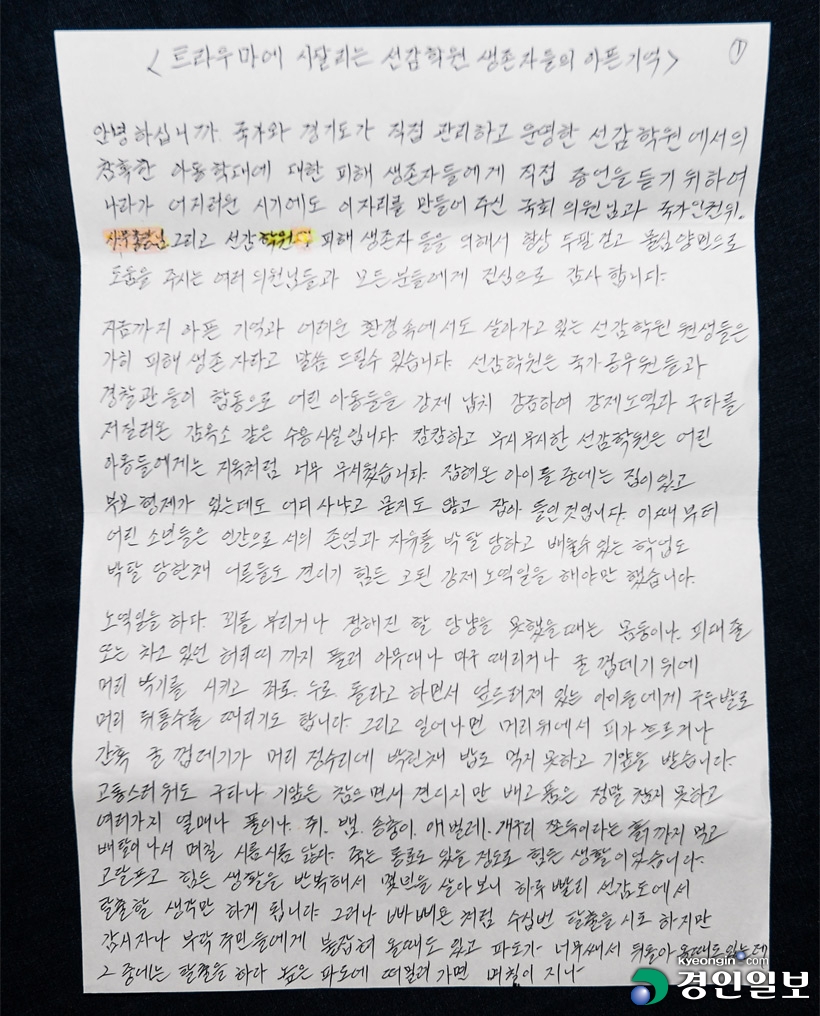 ①
<트라우마에 시달리는 선감학원 생존자들의 아픈기억>
안녕하십니까. 국가와 경기도가 직접 관리하고 운영한 선감학원에서의
참혹한 아동학대에 대한 피해 생존자들에게 직접 증언을 듣기 위하여
나라가 어지러운 시기에도 이자리를 만들어 주신 국회 의원님과 국가인권위.
사무총장님 그리고 선감학원 피해 생존자들을 위해서 항상 두팔 걷고 물심양면으로
도움을 주시는 여러 의원님들과 모든분들에게 진심으로 감사합니다.
지금까지 아픈 기억과 어려운 환경속에서도 살아가고 있는 선감학원 원생들은
가히 피해 생존자하고 말씀 드릴수 있습니다. 선감학원은 국가공무원들과
경찰관들이 합동으로 어린 아동들을 강제 납치 감금하여 강제노역과 구타를
저질러온 감옥소 같은 수용시설입니다. 캄캄하고 무시무시한 선감학원은 어린
아동들에게는 지옥처럼 너무 무서웠습니다. 잡혀온 아이들 중에는 집이있고
부모 형제가 있는데도 어디 사냐고 묻지도 않고 잡아 들인것입니다. 이때부터
어린 소년들은 인간으로서의 존엄과 자유를 박탈 당하고 배울수있는 학업도
박탈 당한채 어른들도 견디기 힘든 고된 강제노역일을 해야만 했습니다.
노역일을 하다. 꾀를 부리거나 정해진 할당량을 못했을때는 몽둥이나. 피대줄
또는 차고 있던 허리띠까지 풀러 아무대나 마구 때리거나 굴 껍데기위에
머리 박기를 시키고 좌로. 우로. 돌라고 하면서 엎드려져 있는 아이들에게 구두발로
머리 뒤통수를 때리기도 합니다. 그리고 일어나면 머리위에서 피가 흐르거나
간혹 굴 껍데기가 머리 정수리에 박힌채 밥도 먹지못하고 기압을 받습니다.
고통스러워도 구타나 기압은 참으면서 견디지만 배고픔은 정말 참지 못하고
여러가지 열매나 풀이나. 쥐. 뱀. 송충이. 애벌레. 개구리 쫀득이라는 흙까지 먹고
배탈이나서 며칠 시름시름 앓다. 죽는 동료도 있을 정도로 힘든 생활이었습니다.
고달프고 힘든 생활을 반복해서 몇년을 살아보니 하루 빨리 선감도에서
탈출할 생각만 하게 됩니다. 그러나 빠삐용 처럼 수십번 탈출을 시도 하지만
감시자나 부락 주민들에게 붙잡혀 올때도 있고 파도가 너무쌔서 뒤돌아 올때도있는데
그 중에는 탈출을 하다 높은 파도에 떠밀려 가면 며칠이 지나
kyeongin.com
경인일보